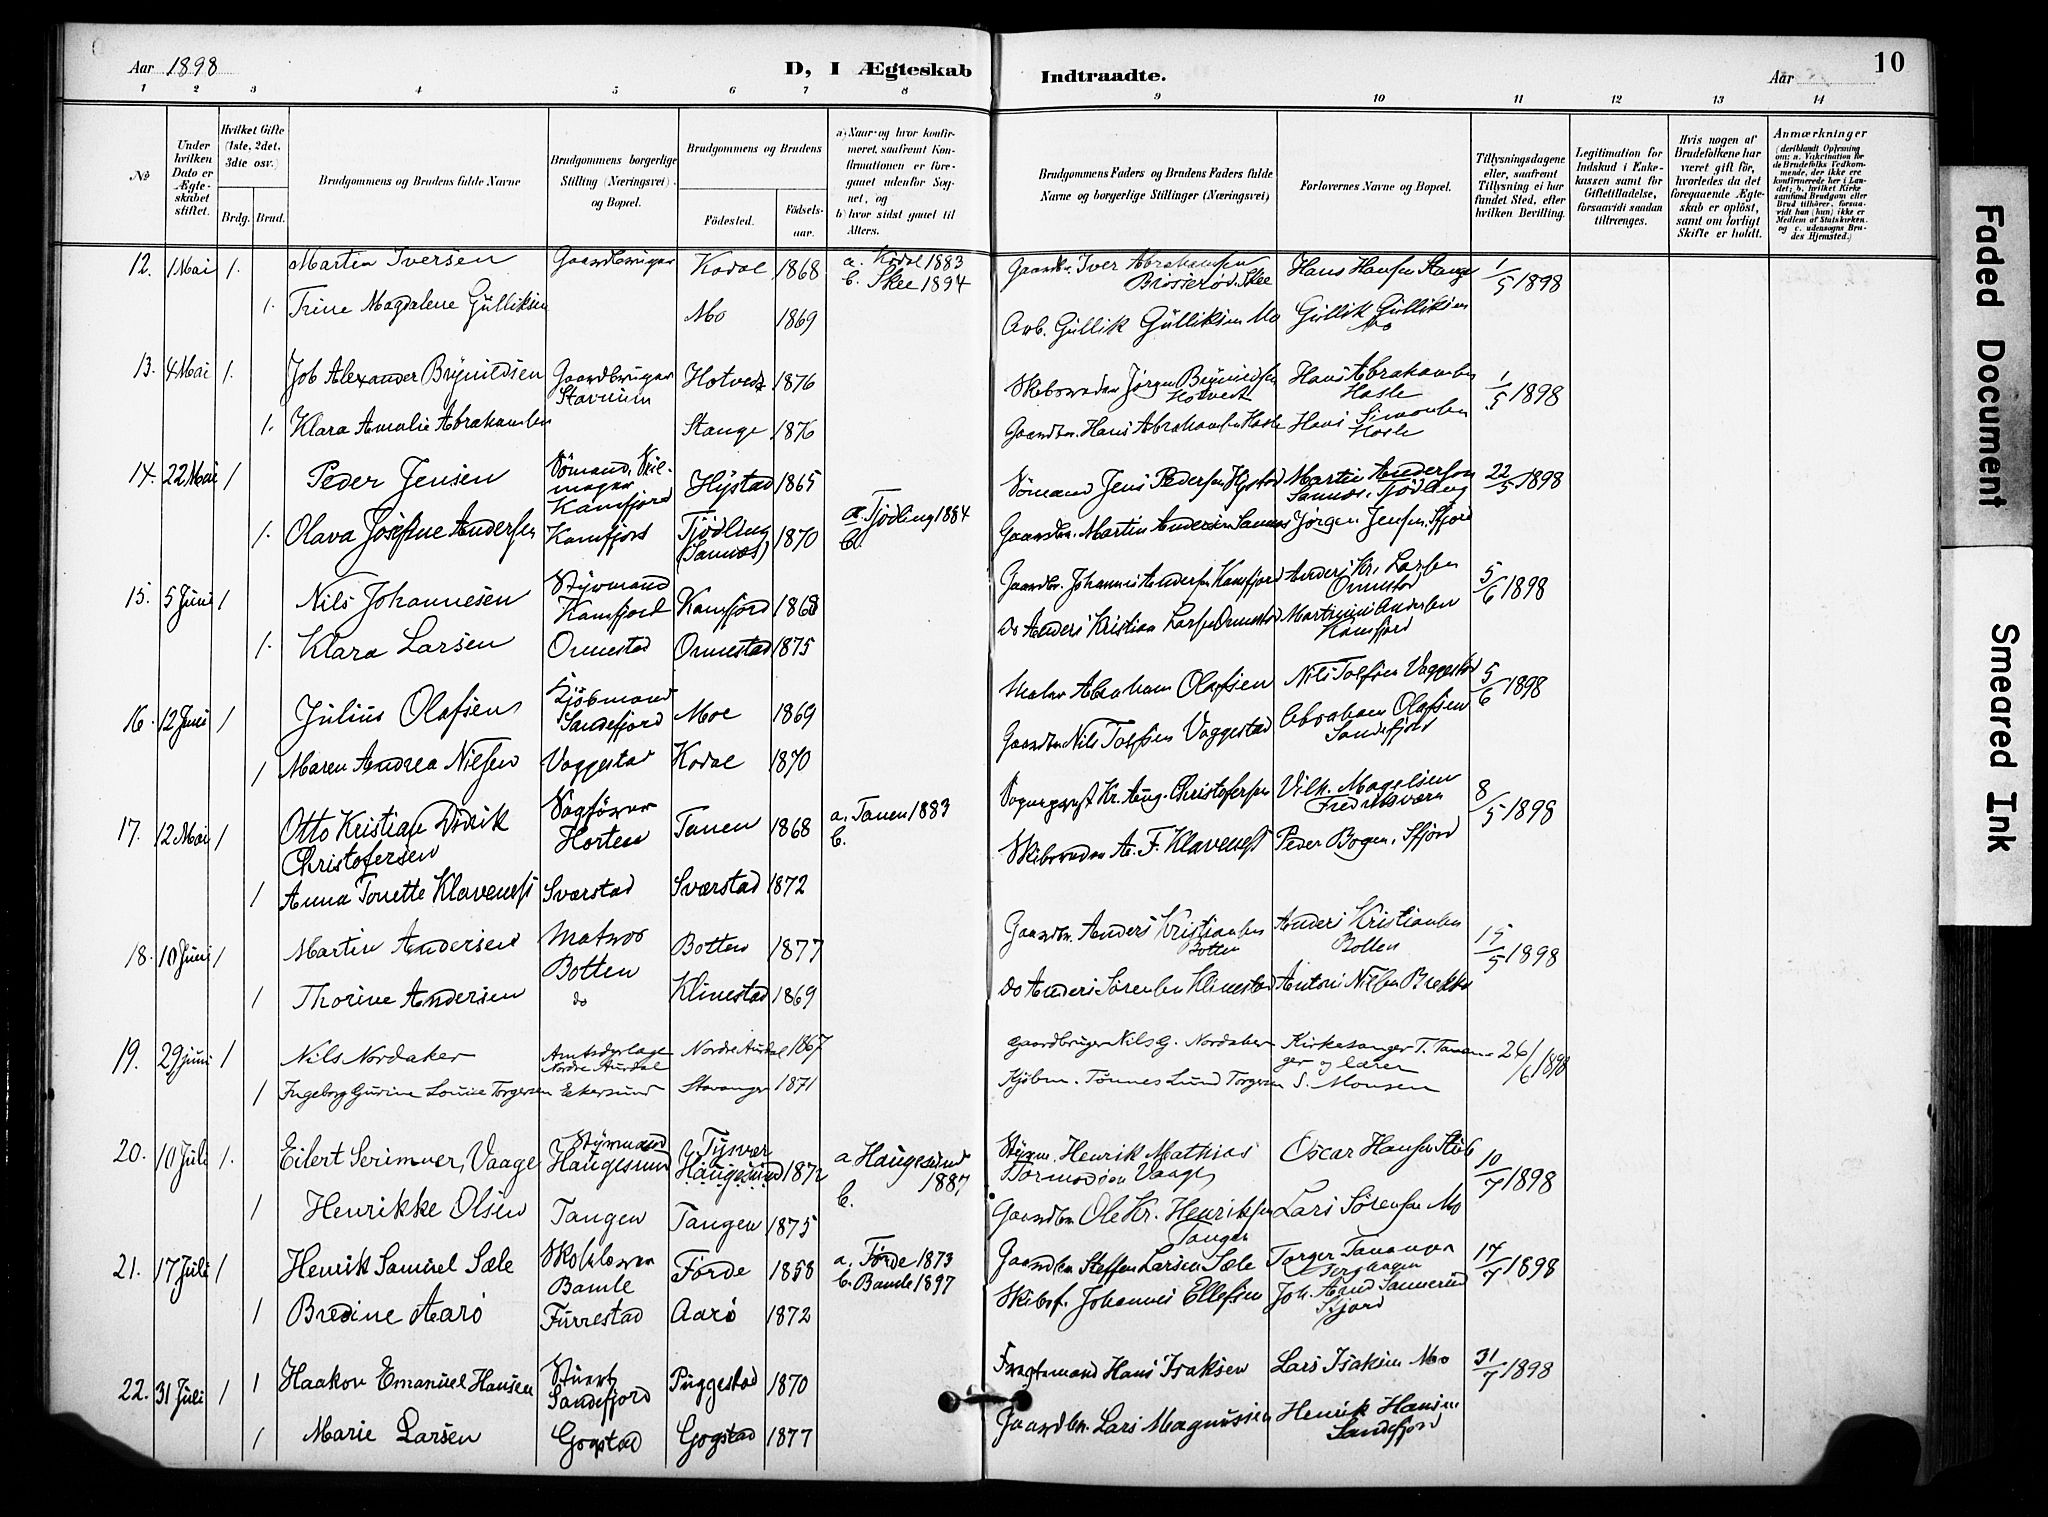 Aar 1898
D, I Ægteskab
Indtraadte.
Aar
10
1 2 3 4 5 6 7 8 9 10 11 12 13 14
No
Under hvilken Dato er Ægteskabet stiftet.
Hvilket Gifte (1ste, 2det, 3die osv.)
Brdg. Brud.
Brudgommens og Brudens fulde Navne
Brudgommens borgerlige Stilling (Næringsvei) og Bopæl.
Brudgommens og Brudens
Födested. Födselsaar.
a) Naar og hvor konfirmeret, saafremt Konfirmationen er foregaaet udenfor Sognet, og
b) hvor sidst gaaet til Alters.
Brudgommens Faders og Brudens Faders fulde Navne og borgerlige Stillinger (Næringsvei)
Forlovernes Navne og Bopæl.
Tillysningsdagene eller, saafremt Tillysning ei har fundet Sted, efter hvilken Bevilling.
Legitimation for Indskud i Enkekassen samt for Giftetilladelse, forsaavidt saadan tiltrænges.
Hvis nogen af Brudefolkene har været gift för, hvorledes da det foregaaende Ægteskab er oplöst, samt om lovligt Skifte er holdt.
Anmærkninger (deriblandt Oplysning om: a. Vakcination for de Brudefolks Vedkommende, der ikke ere konfirmerede her i Landet; b. hvilket Kirkesamfund Brudgom eller Brud tilhörer, forsaavidt han (hun) ikke er Medlem af Statskirken, og c. udensogns Brudes Hjemsted.)
12. 1 Mai 1. Martin Iversen Gaardbruger Kodal 1868 a. Kodal 1883 b. Skee 1894 Gaardbr. Iver Abrahamsen Skee Hans Hansen Stange 1/5 1898
1. Trine Magdalene Gulliksen Mo 1869 Arb. Gullik Gulliksen Mo Gullik Gulliksen Mo
13. 4 Mai 1. Job Alexander Brynildsen Gaardbruger Stavnum Hotvedt 1876 Jörgen Brynildsen Hotvedt Hans Abrahamsen Hasle 1/5 1898
1. Klara Amalie Abrahamsen Stange 1876 Gaardbr. Hans Abrahamsen Hasle Hans Simonsen Hasle
14. 22 Mai 1 Peder Jensen Sömand, Seilmager Kamfjord Hystad 1865 Sömand Jens Pedersen Hystad Martin Andersen Sannæs, Tjödling 22/5 1898
1. Olava Josefine Andersen Kamfjord Tjödling (Sannæs) 1870 a. Tjödling 1884 b. Gaardbr. Martin Andersen Sannæs Jörgen Jensen, Sfjord
15. 5 Juni 1 Nils Johannesen Styrmand Kamfjord Kamfjord 1868 Gaardbr. Johannes Andersen Kamfjord Anders Kr. Larsen Ormestad 5/6 1898
1. Klara Larsen Ormestad Ormestad 1875 Do Anders Kristian Larsen Ormestad Andersen Kamfjord
16. 12 Juni 1 Julius Olafsen Kjöbmand Sandefjord Moe 1869 Maler Abraham Olafsen Nils Tolfsen Vaggestad 5/6 1898
1 Maren Andrea Nielsen Vaggestad Kodal 1870 Gaardbr Nils Tolfsen Vaggestad Abraham Olafsen Sandefjord
17. 12 Mai 1 Otto Kristian Didrik Christofersen Sagförer Horten Tanen 1868 a. Tanen 1883 b. Kr. Aug. Christofersen Vilh. Magelsen Fredriksværn 8/5 1898
1 Anna Tonette Klaveness Sværstad Sværstad 1872 A. F. Klaveness Peder Bogen, Sfjord
18. 10 Juni 1 Martin Andersen Matros Botten Botten 1877 Gaardbr. Anders Kristiansen Botten Anders Kristiansen Botten 15/5 1898
1 Thorine Andersen do Klinestad 1869 Do Anders Sörensen Klinestad Anton Nilsen Brekke
19. 29 juni 1 Nils Nordaker Nordre Aurdal Nordre Aurdal 1867 gaardbruger Nils G. Nordaker Kirkesanger T. Tananger og lærer 26/6 1898
1 Ingeborg Gurine Louise Torgersen Ekersund Stavanger 1871 Kjöbm. Tönnes Lund Torgersen S. Monsen
20. 10 Juli 1. Eilert Serimner Vaage Styrmand Haugesund Tysvær Haugesund 1872 a Haugesund 1887 b. Styrm. Henrik Mathias Tormodsen Vaage Oscar Hansen Stub 10/7 1898
1 Henrikke Olsen Tangen Tangen 1875 Gaardbr. Ole Kr. Henriksen Tangen Lars Sörensen Mo
21. 17 Juli 1 Henrik Samuel Sæle Bamle Förde 1858 a. Förde 1873 b. Bamle 1897 Gaardbr Steffen Larsen Sæle Torger Tananger 17/7 1898
1 Bredine Aarö Furrestad Aarö 1872 Skibsf. Johannes Ellefsen Joh. Sannerud Sfjord
22. 31 Juli 1 1 Haakon Emanuel Hansen Stuert Sandefjord Puggestad 1870 Fragtemand Hans Isaksen Lars Isaksen Mo 31/7 1898
1 Marie Larsen Gogstad Gogstad 1877 Gaardbr. Lars Magnussen Henrik Hansen Sandefjord
Faded Document
Smeared Ink